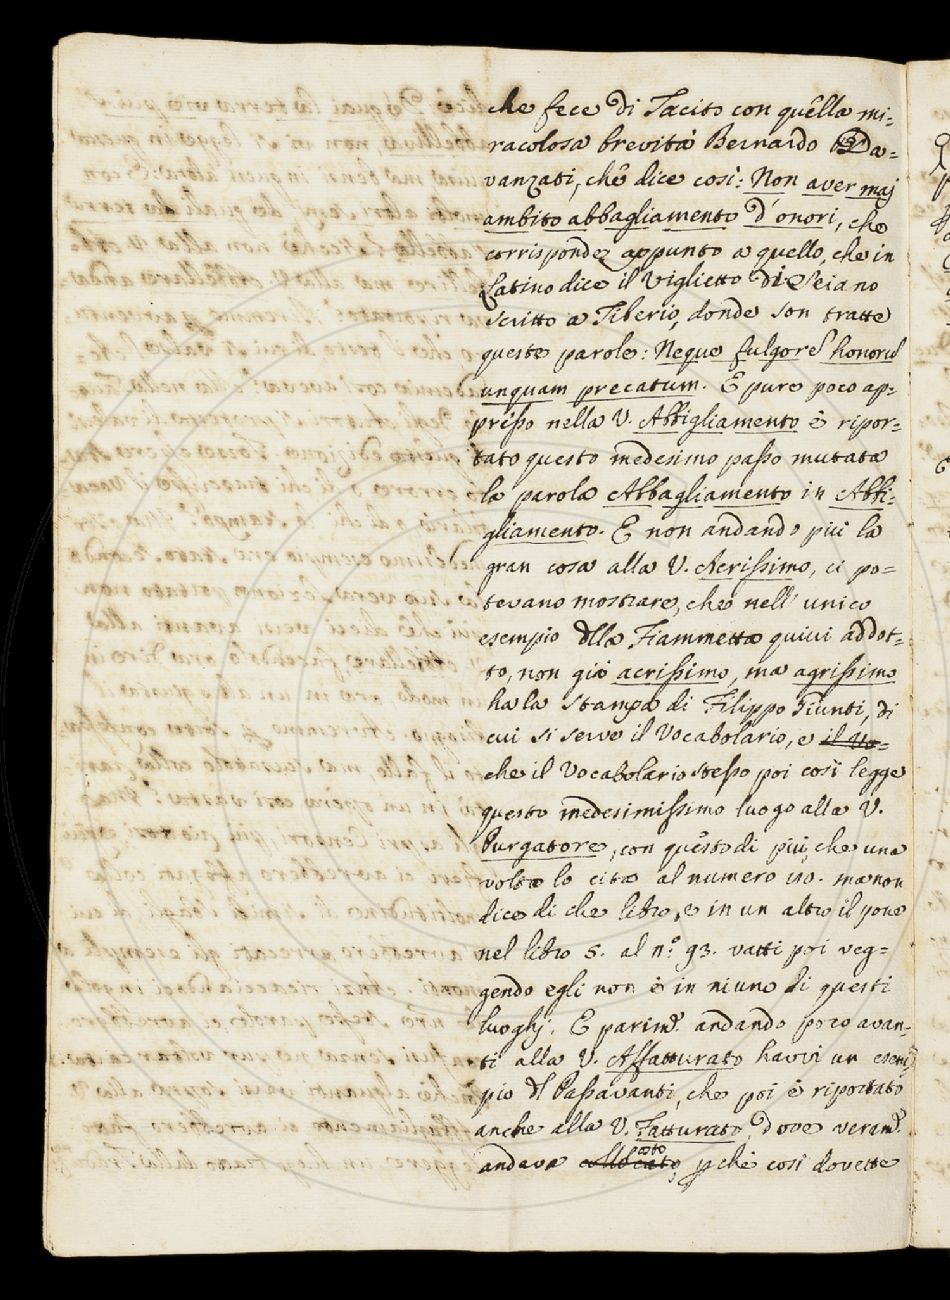 che fece di Tacito con quella mi-
racolosa brevità Bernardo Da-
vanzati, che dice così: Non aver maj
ambito abbagliamento d'onori, che
corrisponde appunto a quello, che in
Latino dice il Viglietto di Seiano
scritto a Tiberio, donde son tratte
queste parole: Neque fulgorem honorum
unquam precatum. E pure poco ap-
presso nella V. Abbigliamento è ripor-
tato questo medesimo passo mutata
la parola Abbagliamento in Abbi-
gliamento. E non andando più là
gran cosa alla V. Acrissimo, ci po-
tevano mostrare, che nell' unico
esempio dlla Fiammetta quivi addot-
to, non già acrissimo, ma agrissimo
ha la Stampa di Filippo Giunti, di
cui si serve il Vocabolario, e il Vo-
che il Vocabolario stesso poi così legge
questo medesimissimo luogo alla V.
Purgatore, con questo di più, che una
volta lo cita al numero 110. ma non
dice di che libro, e in un altro il pone
nel libro 5. al n.o 93. vatti poi veg-
gendo egli non è in niuno di questi
luoghj. E parim.e andando poco avan-
ti alla V. Affatturato havvi un esem-
pio dl Passavanti, che poi è riportato
anche alla V. Fatturato, dove veram.e
andava collocato posto, pchè così dovette